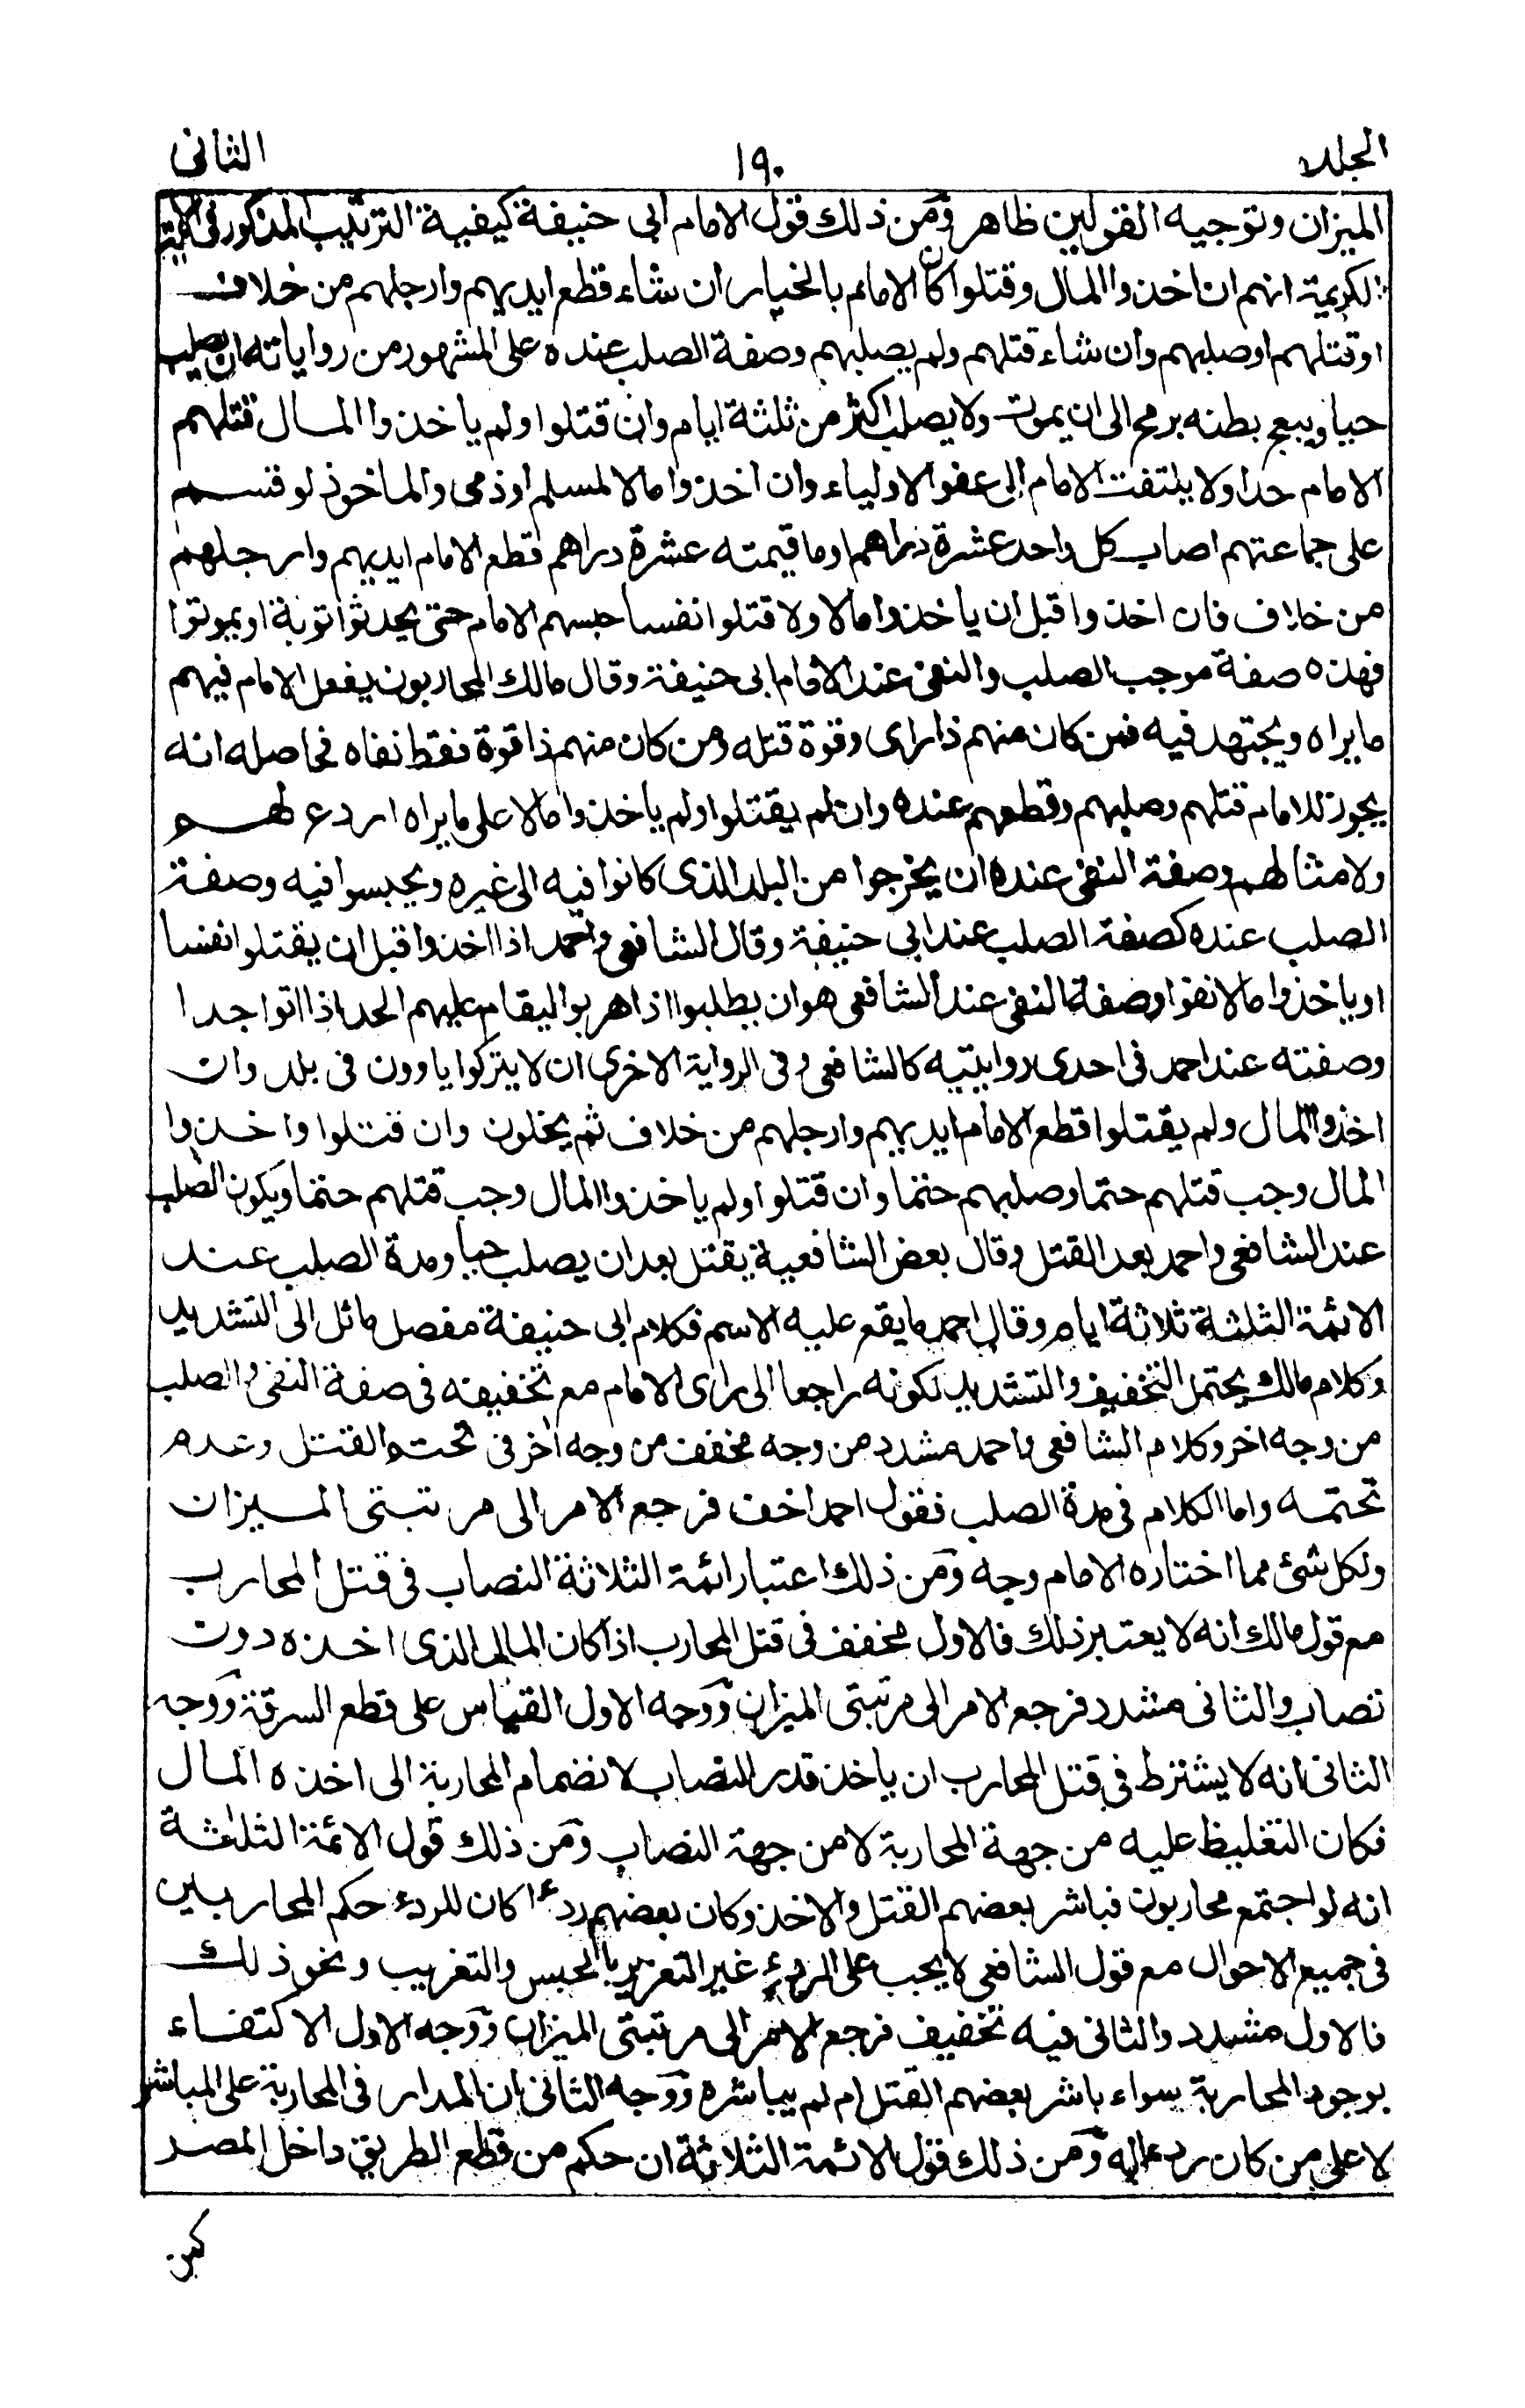 الجلد ١٩٠ الثانى
الميزان وتوجيه القولين ظاهر ومن ذلك قول الامام ابى حنيفة كيفية الترتيب المذكور فى الاية
الكريمة انهم ان اخذوا المال وقتلوا كان الامام بالخيار ان شاء قطع ايديهم وارجلهم من خلاف
او قتلهم او صلبهم وان شاء قتلهم ولم يصلبهم وصفة الصلب عنده على المشهور من رواياته ان يصلب
حيا ويبعج بطنه برمح الى ان يموت ولا يصلب اكثر من ثلثة ايام وان قتلوا ولم ياخذوا المال قتلهم
الامام حدا ولا يلتفت الامام الى عفو الاولياء وان اخذوا مالا لمسلم او ذمى والماخوذ لو قسم
على جماعتهم اصاب كل واحد عشرة دراهم او ما قيمته عشرة دراهم قطع الامام ايديهم وارجلهم
من خلاف فان اخذوا قبل ان ياخذوا مالا ولا قتلوا نفسا حبسهم الامام حتى يحدثوا توبة او يموتوا
فهذه صفة موجب الصلب والنفى عند الامام ابى حنيفة وقال مالك المحاربون يفعل الامام فيهم
ما يراه ويجتهد فيه فمن كان منهم ذا راى وقوة قتله ومن كان منهم ذا قوة فقط نفاه فحاصله انه
يجوز للامام قتلهم وصلبهم وقطعهم عنده وان لم يقتلوا ولم ياخذوا مالا على ما يراه اردع لهم
ولامثالهم وصفة النفى عنده ان يخرجوا من البلد الذى كانوا فيه الى غيره ويحبسوا فيه وصفة
الصلب عنده كصفة الصلب عند ابى حنيفة وقال الشافعى واحمد اذا اخذوا قبل ان يقتلوا نفسا
او ياخذوا مالا نفوا وصفة النفى عند الشافعى هو ان يطلبوا اذا هربوا ليقام عليهم الحد اذا اتوا حدا
وصفته عند احمد فى احدى روايتيه كالشافعى وفى الرواية الاخرى ان لا يتركوا ياوون فى بلد وان
اخذوا المال ولم يقتلوا قطع الامام ايديهم وارجلهم من خلاف ثم يخلون وان قتلوا واخذوا
المال وجب قتلهم حتما وصلبهم حتما وان قتلوا ولم ياخذوا المال وجب قتلهم حتما ويكون الصلب
عند الشافعى واحمد بعد القتل وقال بعض الشافعية يقتل بعد ان يصلب حيا ومدة الصلب عند
الائمة الثلثة ثلاثة ايام وقال احمد ما يقع عليه الاسم فكلام ابى حنيفة مفصل مائل الى التشديد
وكلام مالك يحتمل التخفيف والتشديد لكونه راجعا الى راى الامام مع تخفيفه فى صفة النفى والصلب
من وجه اخر وكلام الشافعى واحمد مشدد من وجه مخفف من وجه اخر فى تحتم القتل وعدم
تحتمه واما الكلام فى مدة الصلب فقول احمد اخف فرجع الامر الى مرتبتى الميزان
ولكل شئ مما اختاره الامام وجه ومن ذلك اعتبار ائمة الثلاثة النصاب فى قتل المحارب
مع قول مالك انه لا يعتبر ذلك فالاول مخفف فى قتل المحارب اذا كان المال الذى اخذه دون
نصاب والثانى مشدد فرجع الامر الى مرتبتى الميزان ووجه الاول القياس على قطع السرقة ووجه
الثانى انه لا يشترط فى قتل المحارب ان ياخذ قدر النصاب لانضمام المحاربة الى اخذه المال
فكان التغليظ عليه من جهة المحاربة لا من جهة النصاب ومن ذلك قول الائمة الثلثة
انه لو اجتمع محاربون فباشر بعضهم القتل والاخذ وكان بعضهم ردءا كان للردء حكم المحاربين
فى جميع الاحوال مع قول الشافعى لا يجب على الردء غير التعزير بالحبس والتغريب ونحو ذلك
فالاول مشدد والثانى فيه تخفيف فرجع الامر الى مرتبتى الميزان ووجه الاول الاكتفاء
بوجود المحاربة سواء باشر بعضهم القتل ام لم يباشره ووجه الثانى ان المدار فى المحاربة على المباشر
لا على من كان ردءا له ومن ذلك قول الائمة الثلاثة ان حكم من قطع الطريق داخل المصر
كمن